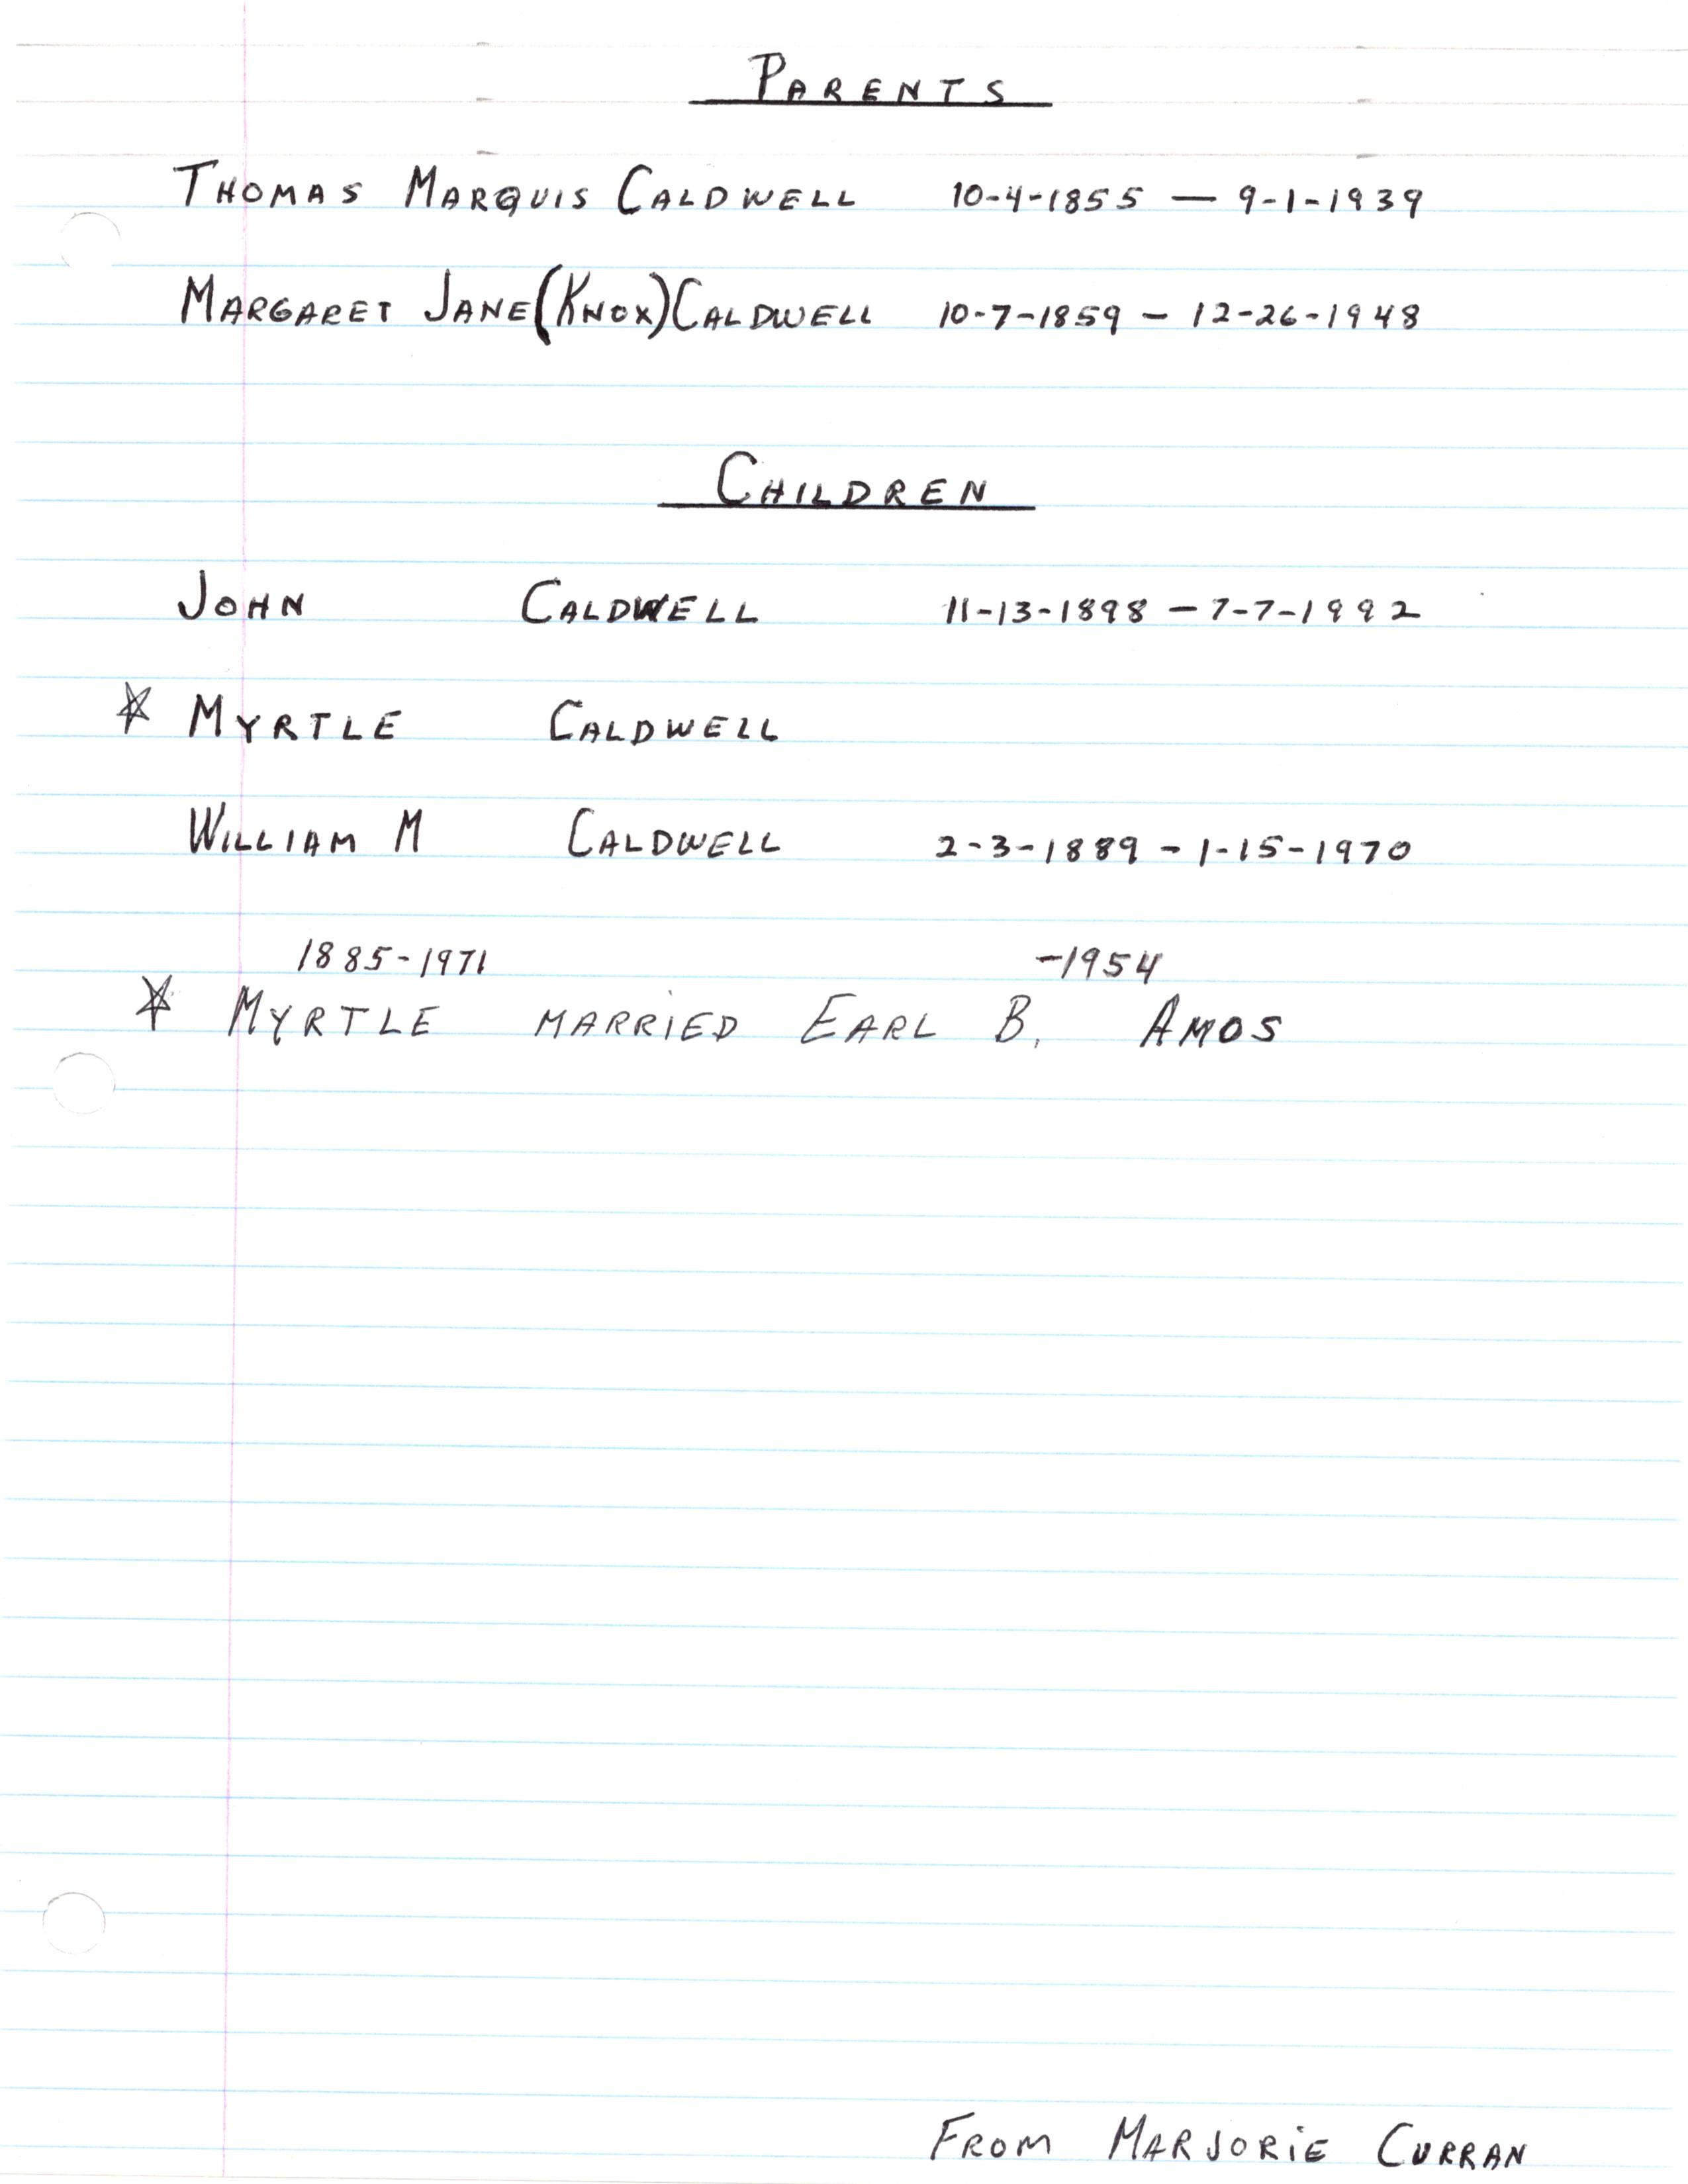 PARENTS
THOMAS MARQUIS CALDWELL 10-4-1855 — 9-1-1939
MARGARET JANE (KNOX) CALDWELL 10-7-1859 - 12-26-1948
CHILDREN
JOHN CALDWELL 11-13-1898 - 7-7-1992
* MYRTLE CALDWELL
WILLIAM M CALDWELL 2-3-1889 - 1-15-1970
1885-1971 -1954
* MYRTLE MARRIED EARL B. AMOS
FROM MARJORIE CURRAN